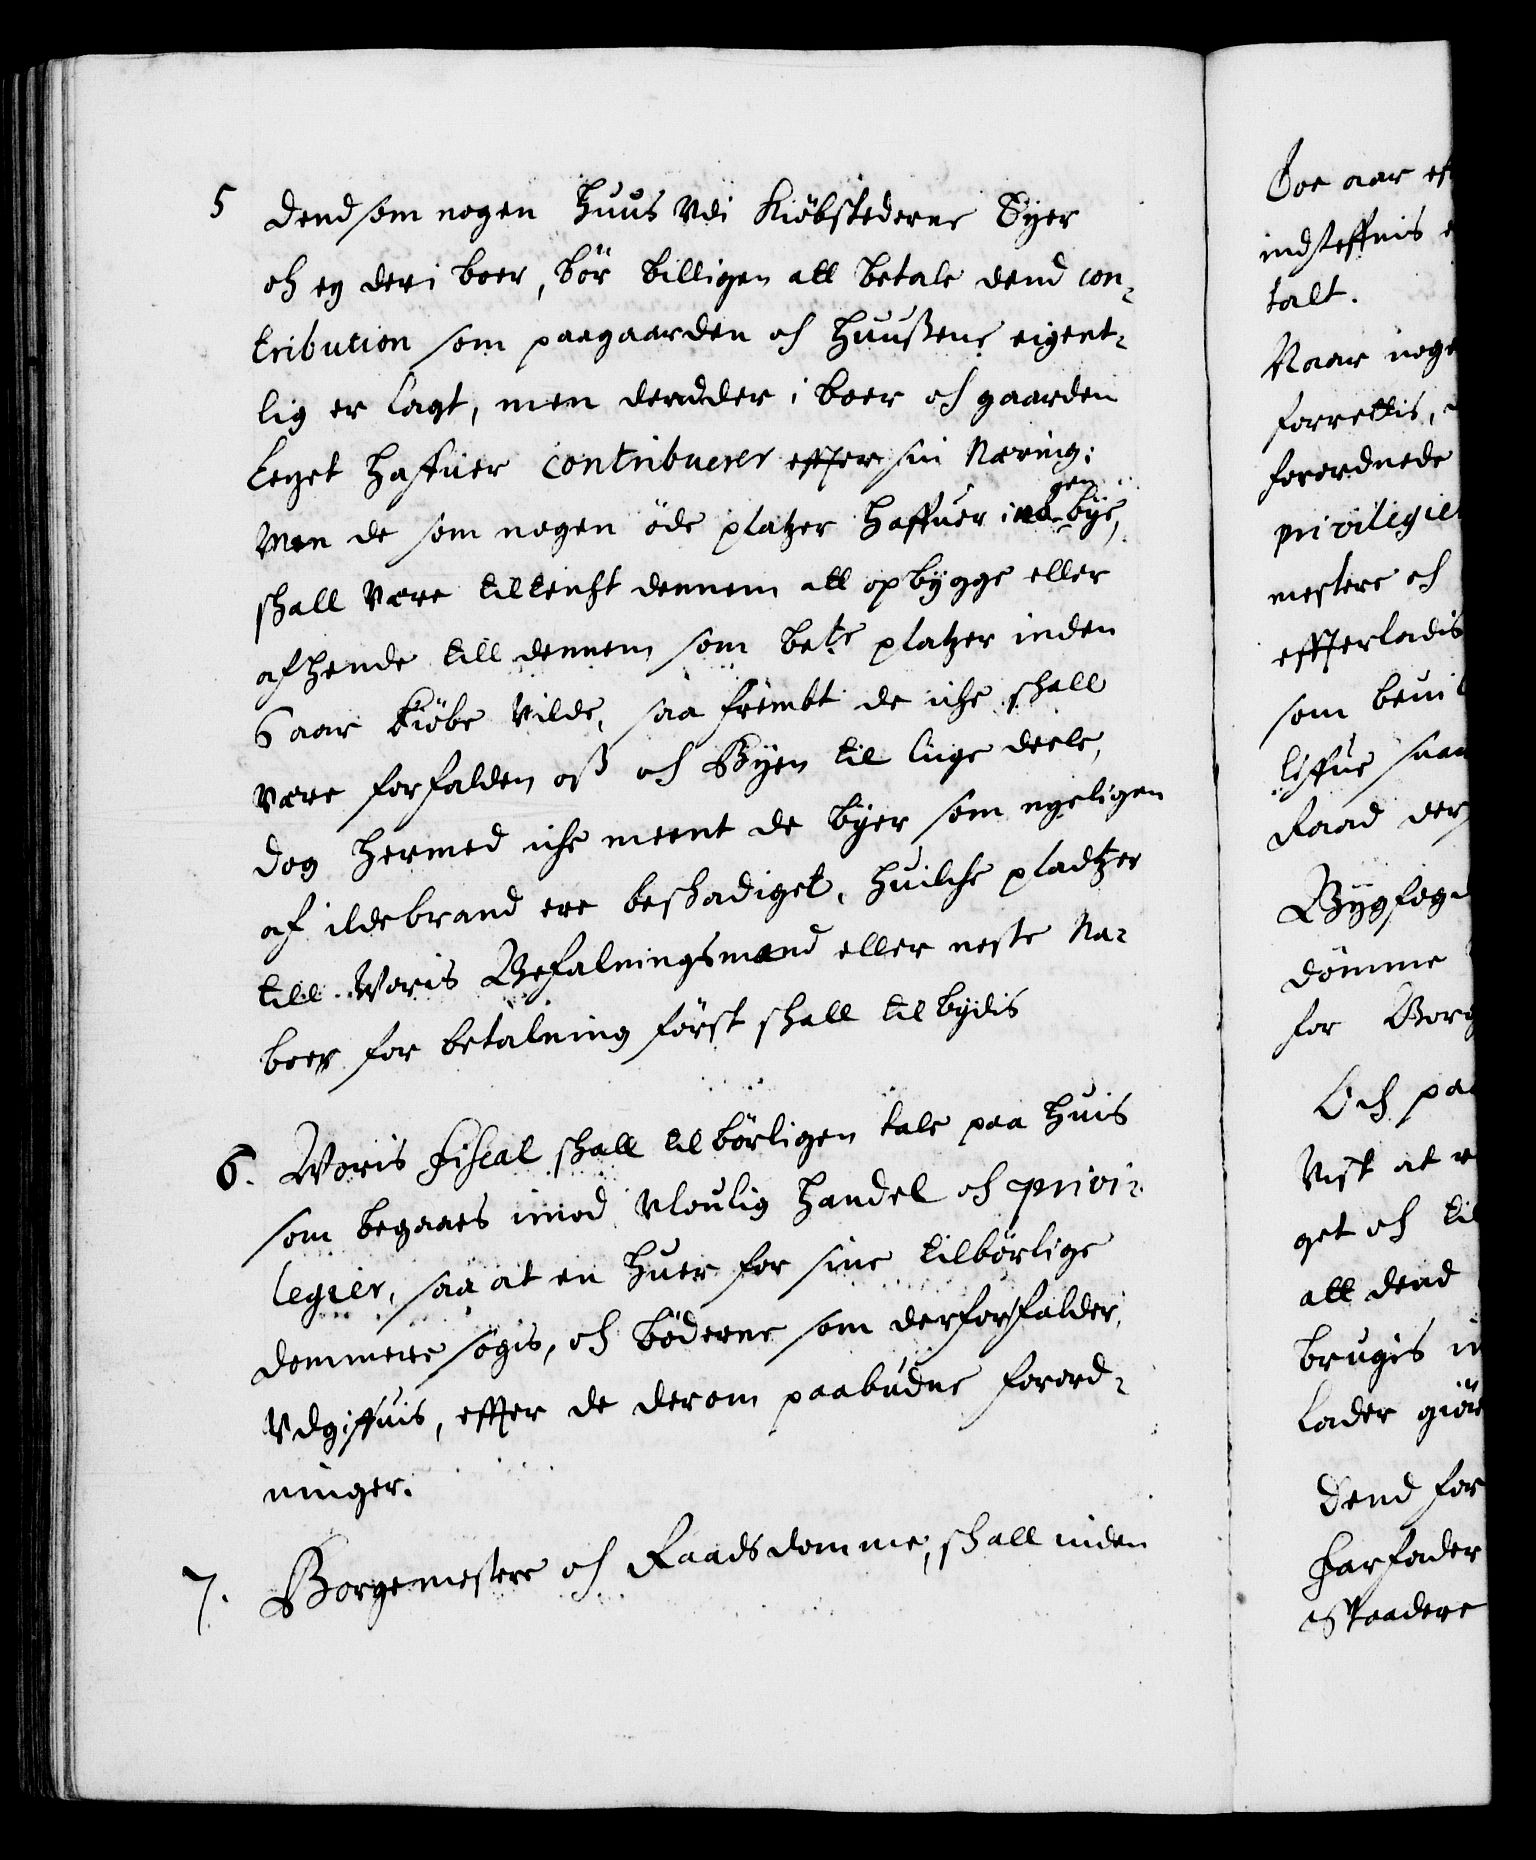 5 Dend som nogen Huus Vdi Kiöbstederne Eyer
och ey der i boer, bör billigen att betale dend con-
tribution som paagaarden och Huussene eigent-
lig er lagt, men dend der i boer och gaarden
leyet haffuer contribuerer effter sin Næring;
Men de som nogen öde platzer haffuer i nogen bÿe,
shall Være tiltenkt dennem att opbygge eller
afhende till dennem som bete platzer inden
6 aar kiöbe Vilde, saa frembt de iche shall
Være forfalden oss och Byen til lige deele,
dog hermed iche meent de byer som nyeligen
af ildebrand ere beshadiget, huilche pladtzer
till Woris Befalningsmænd eller neste Na-
boer for betalning först shall tilbydis
6. Woris Fiscal shall tilbörligen tale paa huis
som begaaes imod Vloulig handel och privi-
legier, saa at en huer for sine tilbörlige
dommere sögis, och böderne som derfor falder,
Vdgiffuis, effter de derom paabudne forord-
ninger.
7. Borgemestere och Raads domme, shall inden
Toe aar eff
indsteffnis e
talt.
Naar noge
forrettis,
forordnede
privilegie
mestere och
effterladis
som beuil
liffue saa
Raad der
Bygfoged
dömme
for Borg
Och paa
Vist at e
get och til
att dend
brugis i
lader giör
Dend for
Farfader
Staadere